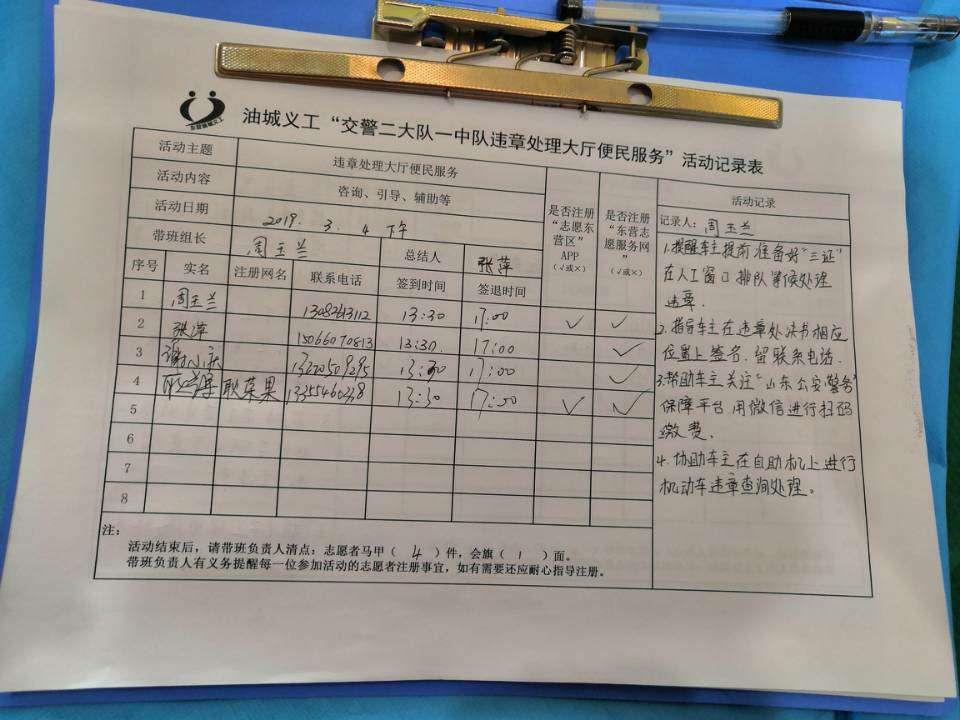 油城义工“交警二大队一中队违章处理大厅便民服务”活动记录表
活动主题 违章处理大厅便民服务
活动内容 咨询、引导、辅助等
活动日期 2019. 3. 4 下午
带班组长 周玉兰 总结人 张萍
是否注册“志愿东营区”APP（√或×）
是否注册“东营志愿服务网”（√或×）
序号 实名 注册网名 联系电话 签到时间 签退时间
1 周玉兰 13:30 17:00 √ √
2 张萍 15066070813 13:30 17:00 √
3 13:30 17:00 √
4 耿荣果 13:30 17:00 √ √
5
6
7
8
活动记录
记录人：周玉兰
1.提醒车主提前准备好“三证”
在人工窗口排队等候处理
违章.
2.指导车主在违章处决书相应
位置上签名.留联系电话.
3.帮助车主关注“山东公安警务
保障平台 用微信进行扫码
缴费.
4.协助车主在自助机上进行
机动车违章查询处理。
注：
活动结束后，请带班负责人清点：志愿者马甲（ 4 ）件，会旗（ 1 ）面。
带班负责人有义务提醒每一位参加活动的志愿者注册事宜，如有需要还应耐心指导注册。